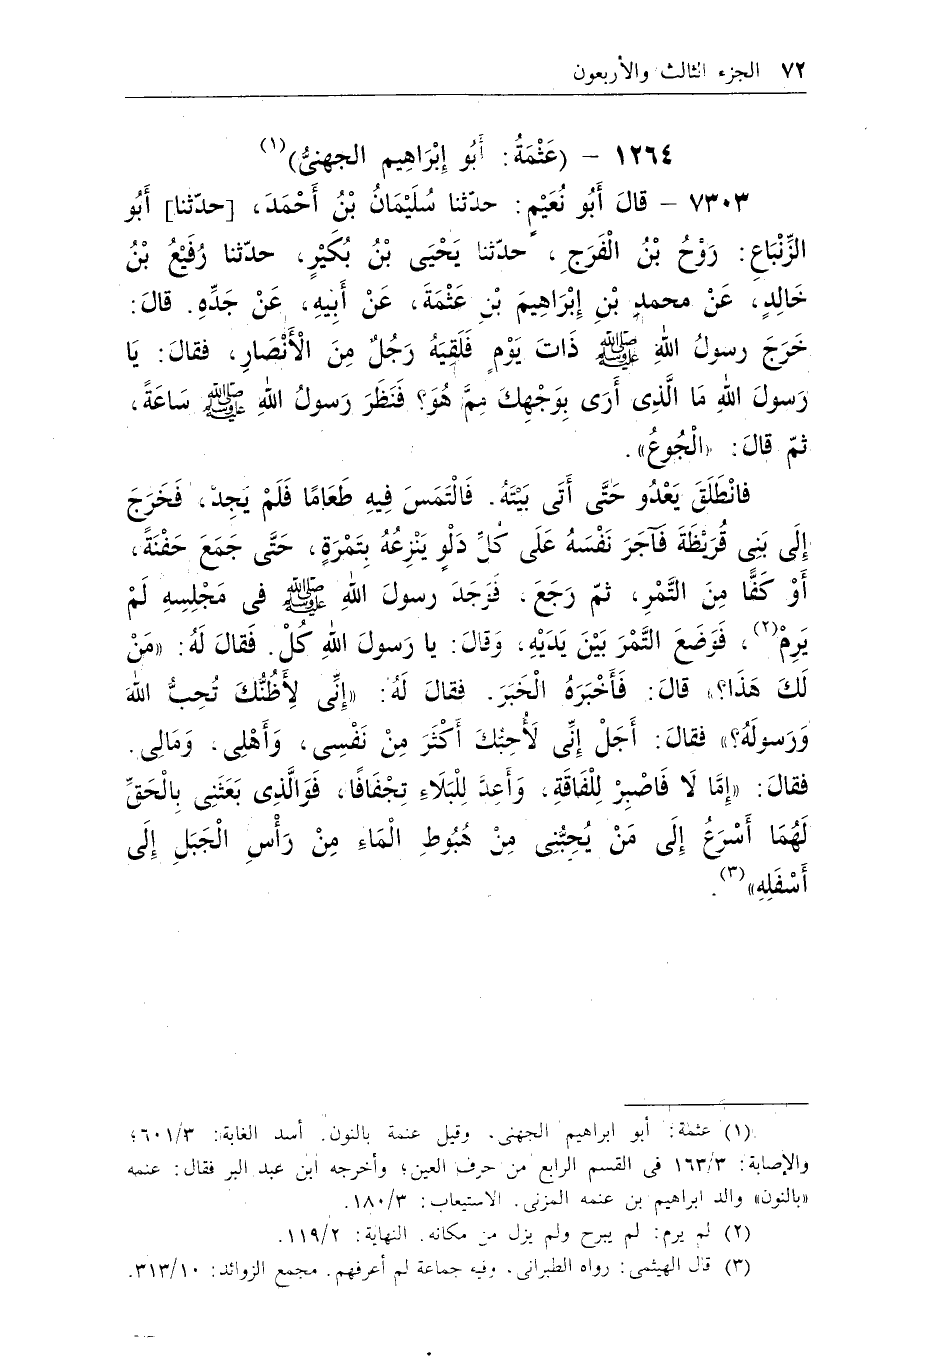 ٧٢ الجزء الثالث والأربعون
١٢٦٤ – (عَثْمَةُ: أَبُو إِبْرَاهِيم الجهنىُّ)(١)
٧٣٠٣ – قالَ أَبُو نُعَيْمٍ: حدّثنا سُلَيْمَانُ بْنُ أَحْمَدَ، [حدّثنا] أَبُو
الزِّنْبَاعِ: رَوْحُ بْنُ الْفَرَجِ، حدّثنا يَحْيَى بْنُ بُكَيْرٍ، حدّثنا رُفَيْعُ بْنُ
خَالِدٍ، عَنْ محمدِ بْنِ إِبْرَاهِيمَ بْنِ عَثْمَةَ، عَنْ أَبِيهِ، عَنْ جَدِّهِ. قالَ:
خَرَجَ رسولُ اللهِ ﷺ ذَاتَ يَوْمٍ فَلَقِيَهُ رَجُلٌ مِنَ الْأَنْصَارِ، فقالَ: يَا
رَسولَ اللهِ مَا الَّذِى أَرَى بِوَجْهِكَ مِمَّ هُوَ؟ فَنَظَرَ رَسولُ اللهِ ﷺ سَاعَةً،
ثمّ قالَ: «الْجُوعُ».
فانْطَلَقَ يَعْدُو حَتَّى أَتَى بَيْتَهُ. فَالْتَمَسَ فِيهِ طَعَامًا فَلَمْ يَجِدْ، فَخَرَجَ
إِلَى بَنِى قُرَيْظَةَ فَآجَرَ نَفْسَهُ عَلَى كُلِّ دَلْوٍ يَنْزِعُهُ بِتَمْرَةٍ، حَتَّى جَمَعَ حَفْنَةً،
أَوْ كَفًّا مِنَ التَّمْرِ، ثمّ رَجَعَ، فَوَجَدَ رسولَ اللهِ ﷺ فى مَجْلِسِهِ لَمْ
يَرِمْ(٢)، فَوَضَعَ التَّمْرَ بَيْنَ يَدَيْهِ، وَقالَ: يا رَسولَ اللهِ كُلْ. فَقالَ لَهُ: «مَنْ
لَكَ هَذَا؟» قالَ: فَأَخْبَرَهُ الْخَبَرَ. فقالَ لَهُ: «إِنِّى لِأَظُنُّكَ تُحِبُّ اللهَ
وَرَسولَهُ؟» فقالَ: أَجَلْ إِنِّى لَأُحِبُّكَ أَكْثَرَ مِنْ نَفْسِى، وَأَهْلِى، وَمَالِى.
فقالَ: «إِمَّا لَا فَاصْبِرْ لِلْفَاقَةِ، وَأَعِدَّ لِلْبَلَاءِ تِجْفَافًا، فَوَالَّذِى بَعَثَنِى بِالْحَقِّ
لَهُمَا أَسْرَعُ إِلَى مَنْ يُحِبُّنِى مِنْ هُبُوطِ الْمَاءِ مِنْ رَأْسِ الْجَبَلِ إِلَى
أَسْفَلِهِ»(٣).
(١) عثمة: أبو ابراهيم الجهنى. وقيل عنمة بالنون. أسد الغابة: ٦٠١/٣؛
والإصابة: ١٦٣/٣ فى القسم الرابع من حرف العين؛ وأخرجه ابن عبد البر فقال: عنمه
«بالنون» والد ابراهيم بن عنمه المزنى. الاستيعاب: ١٨٠/٣.
(٢) لم يرم: لم يبرح ولم يزل من مكانه. النهاية: ١١٩/٢.
(٣) قال الهيثمى: رواه الطبرانى. وفيه جماعة لم أعرفهم. مجمع الزوائد: ٣١٣/١٠.